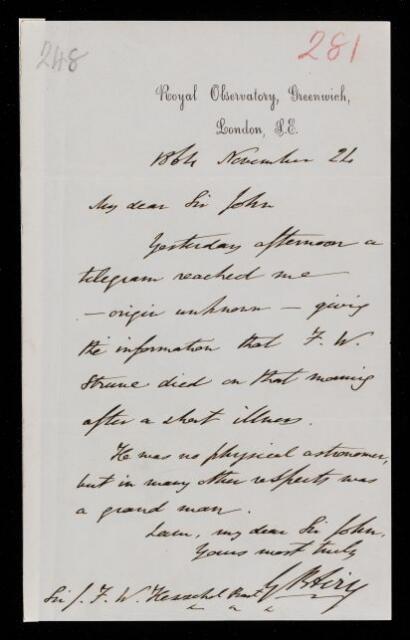 248
281
Royal Observatory, Greenwich,
London, S.E.
1864 November 24
My dear Sir John
Yesterday afternoon a
telegram reached me
— origin unknown — giving
the information that F. W.
Struve died on that morning
after a short illness.
He was no physical astronomer,
but in many other respects was
a grand man.
I am, my dear Sir John,
Yours most truly
G B Airy
Sir J. F. W. Herschel Bart